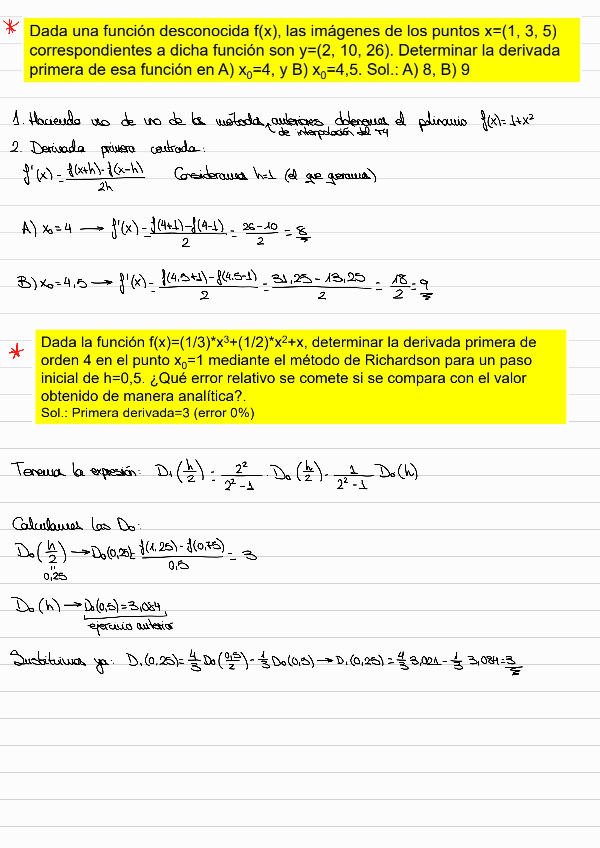 * Dada una función desconocida f(x), las imágenes de los puntos x=(1, 3, 5)
correspondientes a dicha función son y=(2, 10, 26). Determinar la derivada
primera de esa función en A) x₀=4, y B) x₀=4,5. Sol.: A) 8, B) 9
1. Haciendo uso de uno de los métodos anteriores obtenemos el polinomio f(x)=1+x²
de interpolación del T4
2. Derivada primera centrada:
f'(x)=f(x+h)-f(x-h)/2h Consideramos h=1 (el que queramos)
A) x₀=4 → f'(x)=f(4+1)-f(4-1)/2=26-10/2=8
B) x₀=4,5 → f'(x)=f(4,5+1)-f(4,5-1)/2=31,25-13,25/2=18/2=9
* Dada la función f(x)=(1/3)*x³+(1/2)*x²+x, determinar la derivada primera de
orden 4 en el punto x₀=1 mediante el método de Richardson para un paso
inicial de h=0,5. ¿Qué error relativo se comete si se compara con el valor
obtenido de manera analítica?.
Sol.: Primera derivada=3 (error 0%)
Tenemos la expresión: D₁(h/2)=2²/2²-1·D₀(h/2)-1/2²-1 D₀(h)
Calculamos los D₀:
D₀(h/2)→D₀(0,25)=f(1,25)-f(0,75)/0,5=3
0,25
D₀(h)→D₀(0,5)=3,084
ejercicio anterior
Sustituimos ya: D₁(0,25)=4/3 D₀(0,5/2)-1/3 D₀(0,5)→D₁(0,25)=4/3 3,021-1/3 3,084=3